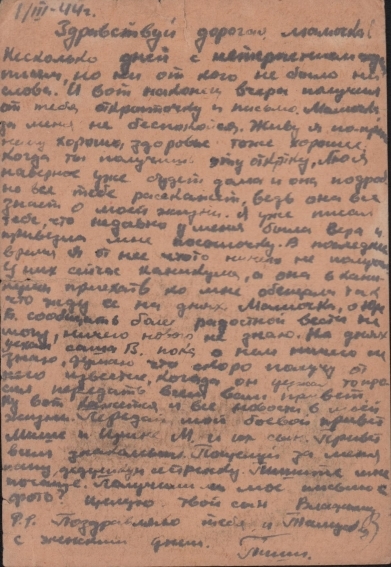 1/III-44г.
Здравствуй дорогая Мамочка!
Несколько дней с нетерпением жду
письма, но ни от кого не было ни
слова. И вот наконец вчера получил
от тебя открыточку и письмо. Мамочка
за меня не беспокойся. Живу я по-преж
нему хорошо, здоровье тоже хорошее.
Когда ты получишь эту открытку, Люся
наверное уже будет дома и она подроб
но все тебе расскажет, ведь она все
знает о моей жизни. Я уже писал
тебе, что недавно у меня была Вера и
привезла мне посылочку. В последнее
время я от нее что-то ничего не получаю
У них сейчас каникулы, а она в кани
кулы приехать ко мне обещала так
что жду ее на днях. Мамочка, о Юре
сообщить более радостной вести не
могу, ничего нового не знаю. На днях
уехал Саша В. пока о нем ничего не
знаю, думаю что скоро получу от
него известие, когда он уезжал то про
сил передать всем вам привет.
Ну вот кажется и все новости в моей
жизни. Передай мой боевой привет
Мише и М. и их сын. Привет
всем знакомым. Поцелуй за меня
папу, дедушку и Пишите мне
почаще. Получили ли мое письмо и
фото? Целую твой сын
P.P. Поздравляю тебя и Тамусю
с женским днем.
Пиши.